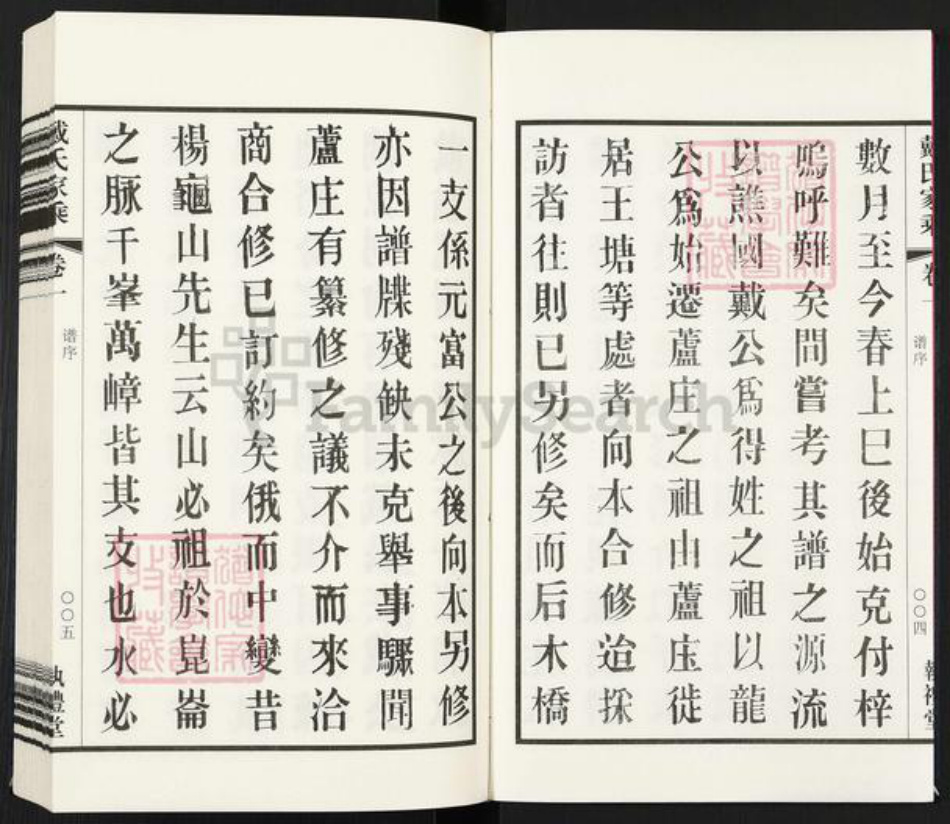 戴氏家乘
卷一
谱序
〇〇四
執禮堂
數月至今春上巳後始克付梓
嗚呼難矣間嘗考其譜之源流
以譙國戴公爲得姓之祖以龍
公爲始遷蘆庄之祖由蘆庄徙
居王塘等處者向本合修迨採
訪者往則已另修矣而后木橋
一支係元富公之後向本另修
亦因譜牒殘缺未克舉事驟聞
蘆庄有纂修之議不介而來洽
商合修已訂約矣俄而中變昔
楊龜山先生云山必祖於崑崙
之脉千峯萬嶂皆其支也水必
戴氏家乘
卷一
谱序
〇〇五
執禮堂
FamilySearch